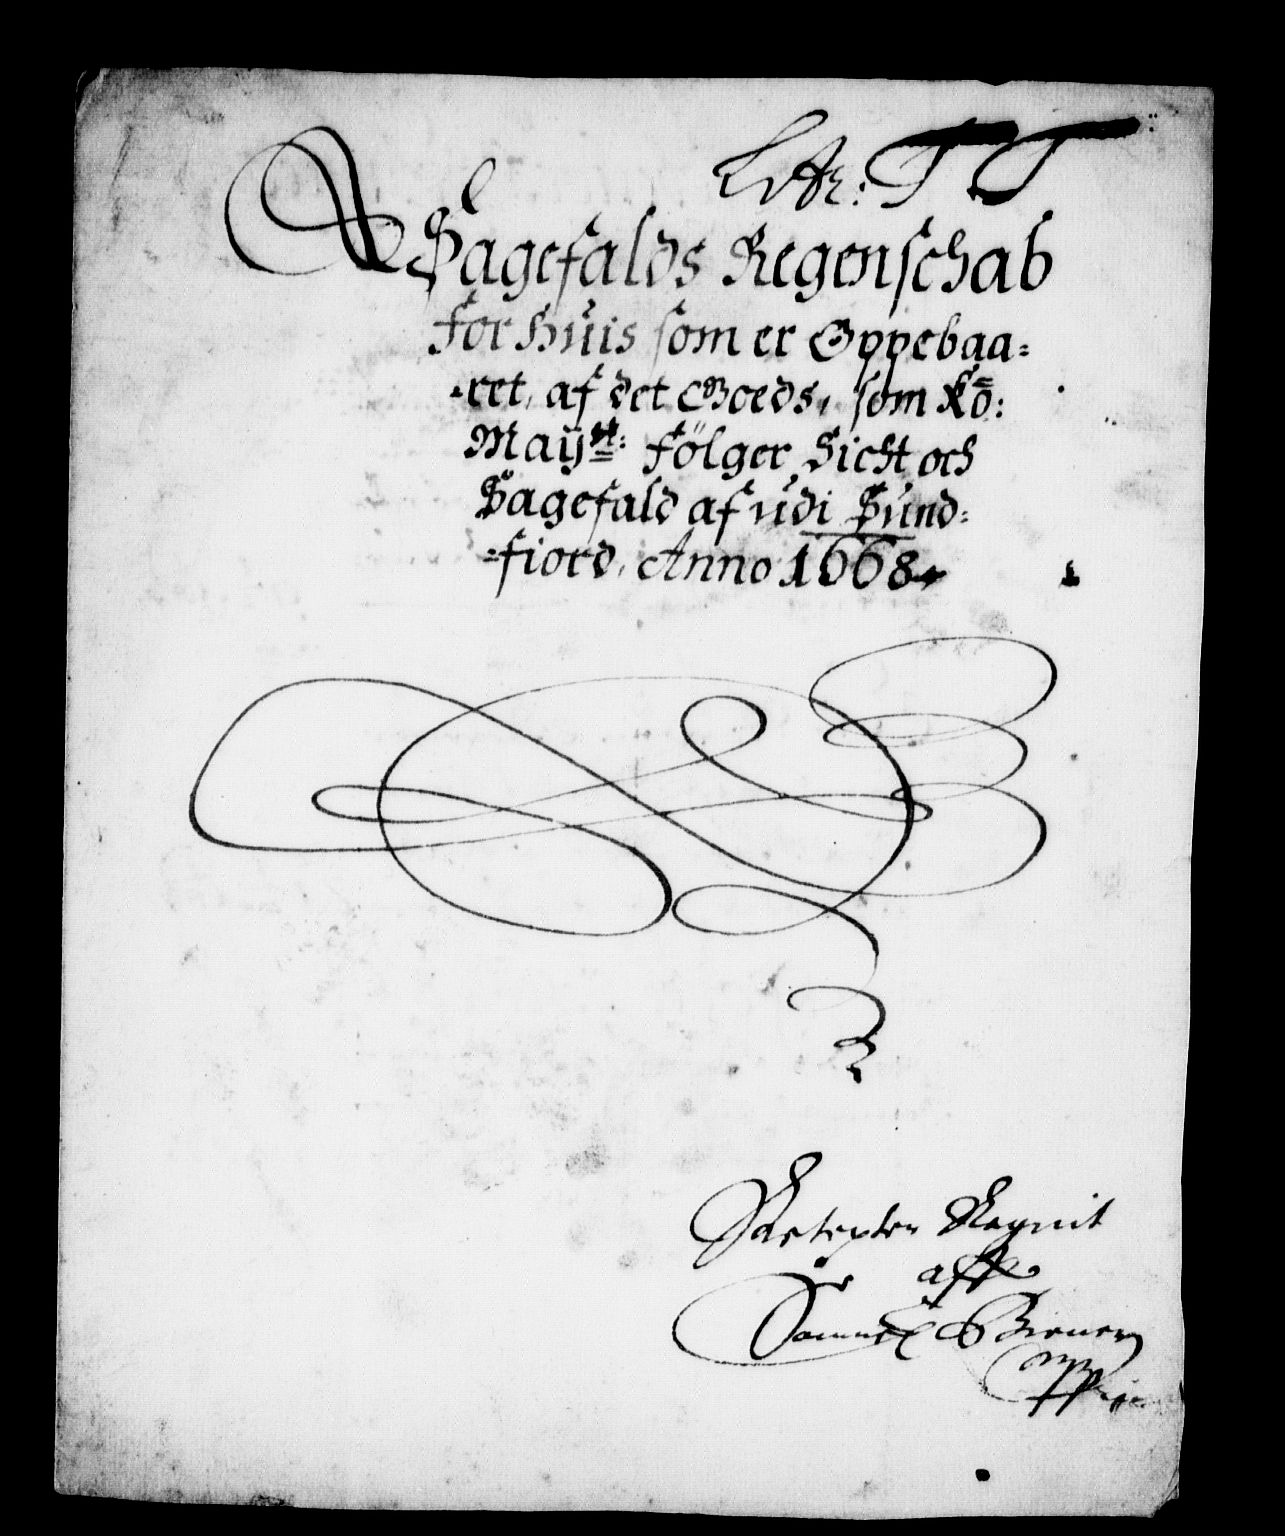 Litr: TT:
Sagefalds Regenschab
for Huis som er Oppebaa=
=ret, af det Goeds, som Ko:
Maÿtt: fölger Sicht och
Sagefald af udi Sund=
=fiord, Anno 1668
aff
Samuel